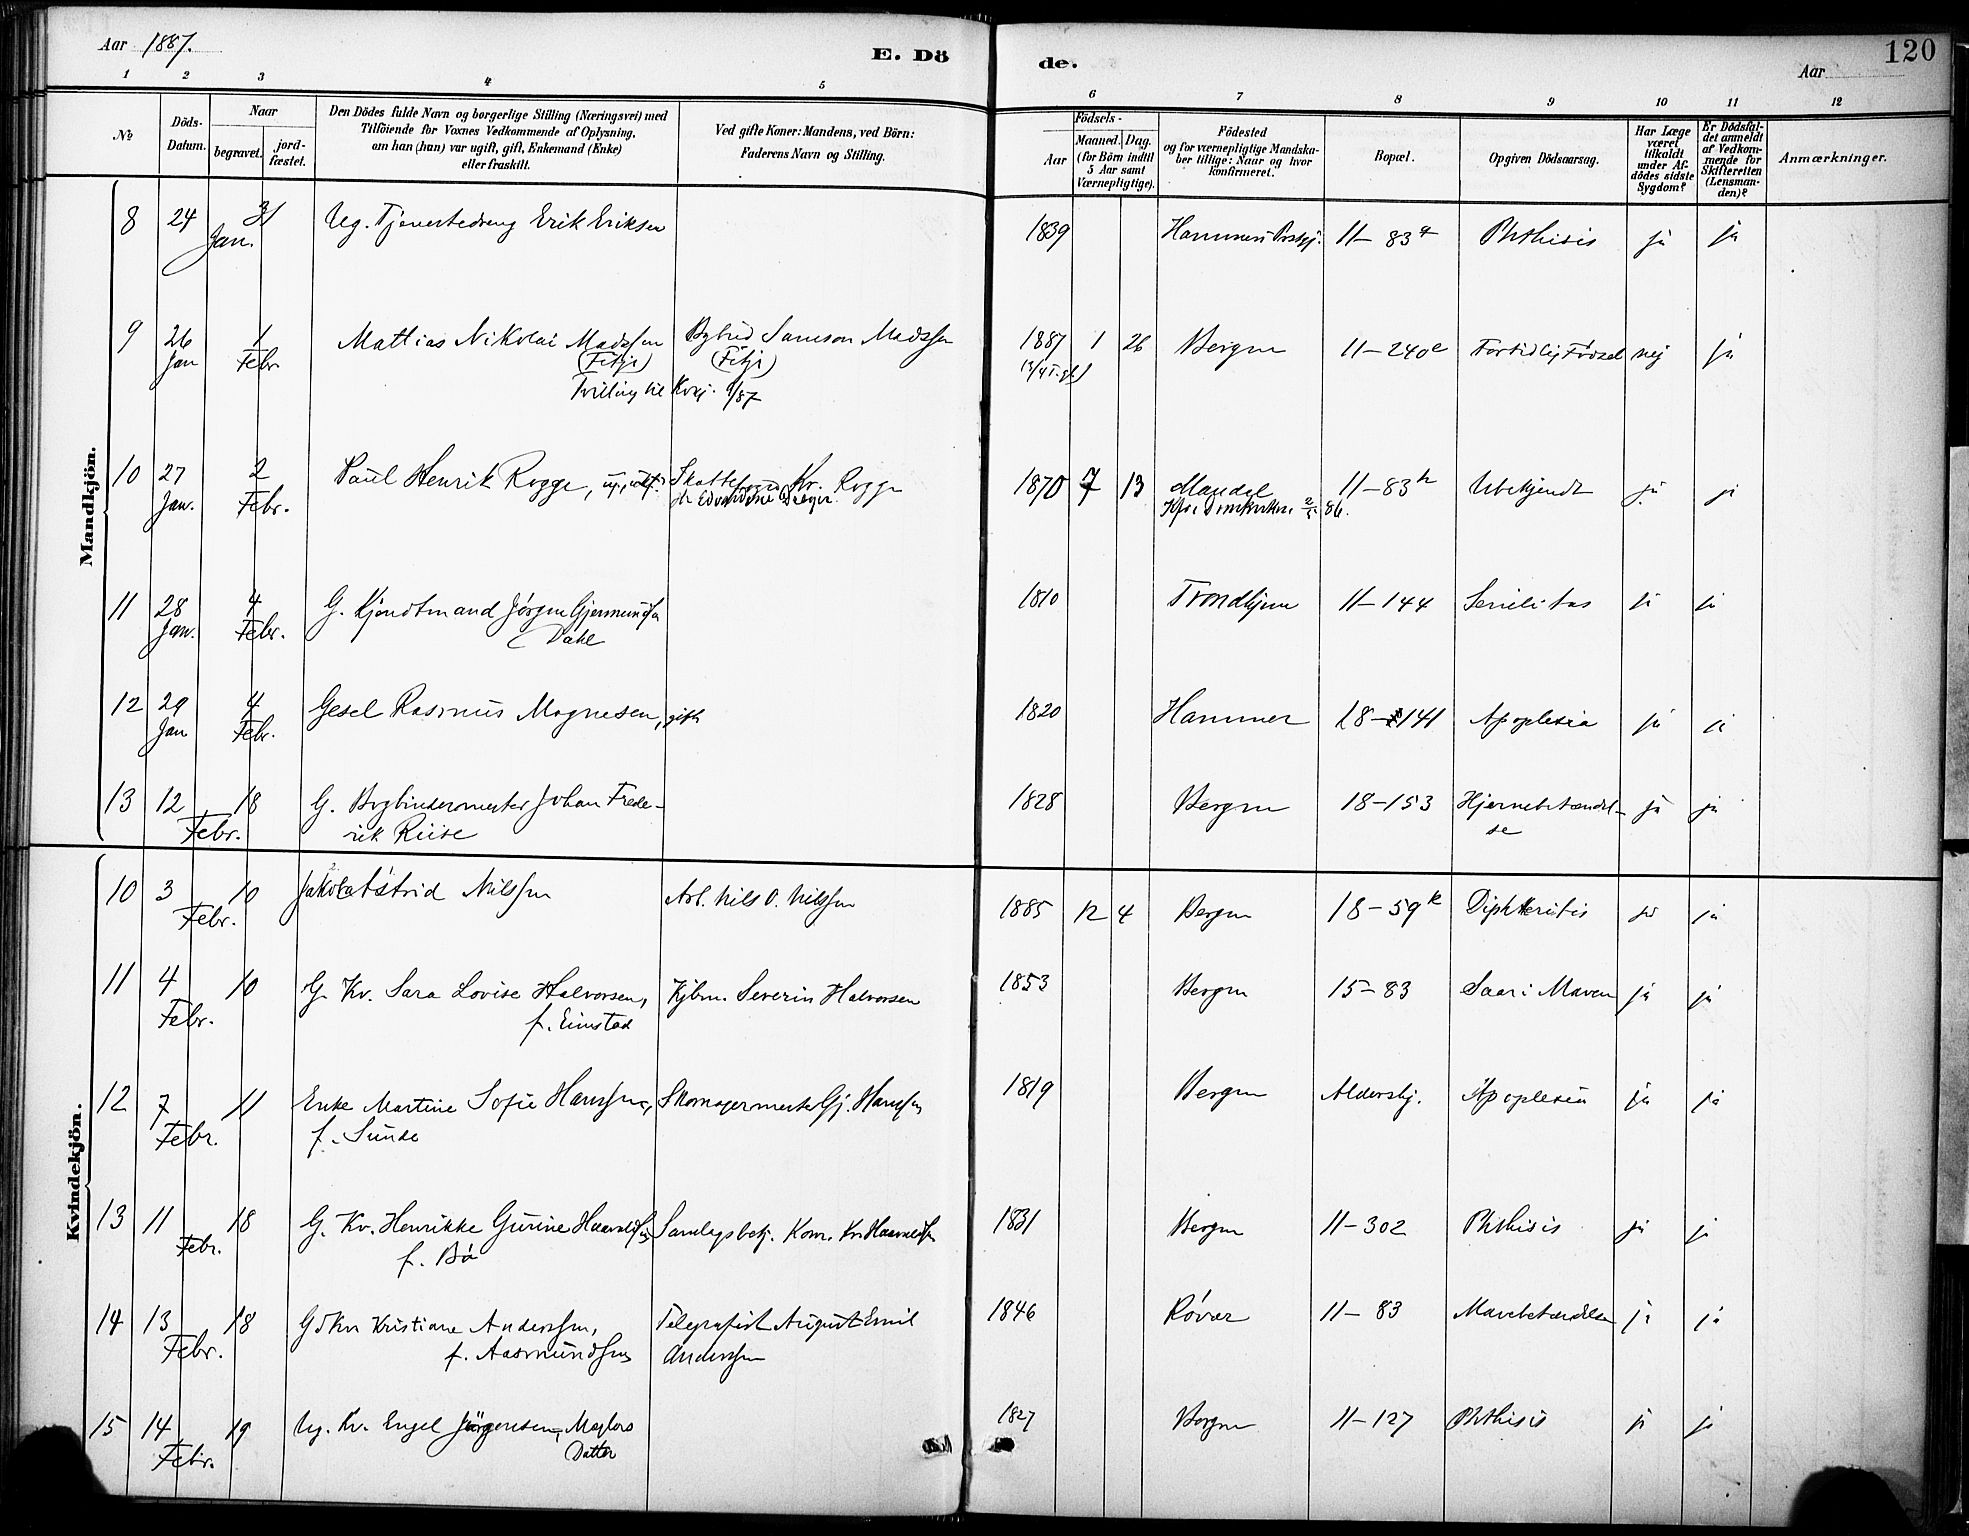 Aar 1887.
E. Dö
de.
Aar
120
1 2 3 4 5 6 7 8 9 10 11 12
№
Döds-
Datum.
Naar
begravet.
jord-
fæstet.
Den Dödes fulde Navn og borgerlige Stilling (Næringsvei) med
Tilföiende for Voxnes Vedkommende af Oplysning,
om han (hun) var ugift, gift, Enkemand (Enke)
eller fraskilt.
Ved gifte Koner: Mandens, ved Börn:
Faderens Navn og Stilling.
Födsels-
Aar
Maaned.
Dag.
(for Börn indtil
5 Aar samt
Værnepligtige).
Födested
og for værnepligtige Mandska-
ber tillige: Naar og hvor
konfirmeret.
Bopæl.
Opgiven Dödsaarsag.
Har Læge
været
tilkaldt
under Af-
dödes sidste
Sygdom?
Er Dödsfal-
det anmeldt
af Vedkom-
mende for
Skifteretten
(Lensman-
den)?
Anmærkninger.
Mandkjön.
8 24 31 Ug. Tjenestedreng Erik Eriksen 1839 Hammers Prstgj. 11-83a Phthisis ja ja
Jan.
9 26 1 Mathias Nikolai Madssen Samson Madssen 1887 1 26 Bergen 11-240e Fortidlig Födsel nej ja
Jan Febr. (Fitje) (Fitje)
Tvilling til Kvkj. 9/87
10 27 2 Paul Henrik Rogge, Kr. Rogge 1870 7 13 Mandal 11-83h Ubekjendt ja ja
Jan. Febr. Kfr. i Domkirken 86.
11 28 4 G. Kjöndtmand Jörgen Gjermundsen 1810 Trondhjem 11-144 Senilitas ja ja
Jan. Febr. Dahl
12 29 4 Gesel Rasmus Magnesen, gift 1820 Hammer 18-141 Apoplexia ja ja
Jan Febr.
13 12 18 G. Bogbindermester Johan Frede- 1828 Bergen 18-153 Hjernebetændel- ja ja
Febr. rik Riise se
Kvindekjön.
10 3 10 Nilssen Arb. Nils O. Nilssen 1885 12 4 Bergen 18-59k Diphteritis ja ja
Febr.
11 4 10 G. Kv. Sara Lovise Halvorsen, Kjbm. Severin Halvorsen 1853 Bergen 15-83 Saar i Maven ja ja
Febr. f. Einstad
12 7 11 Enke Martine Sofie Hanssen, Skomagermester Gj. Hanssen 1819 Bergen Aldershj. Apoplexia ja ja
Febr. f. Sunde
13 11 18 G. Kv. Henrikke Gurine Haavaldsen 1831 Bergen 11-302 Phthisis ja ja
Febr. f. Bö
14 13 18 Kristiane Anderssen, Telegrafist August Emil 1846 Rövær 11-83 Mavebetændelse ja ja
Febr. f. Aasmundsen Anderssen
15 14 19 Ug. Kv. Engel Jörgensen, Mæglers 1827 Bergen 11-127 Phthisis ja ja
Febr. Datter